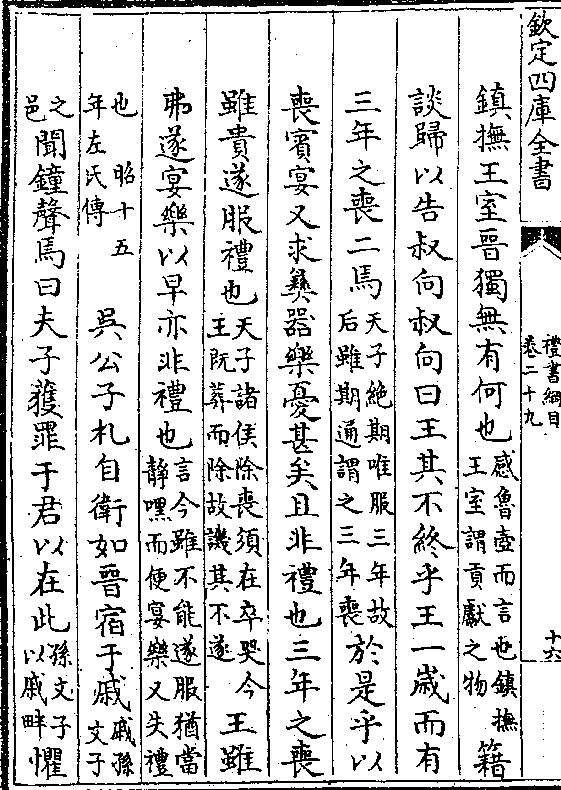 欽定四庫全書
禮書綱目
卷二十九
十六
鎮撫王室晉獨無有何也感魯壺而言也鎮撫王室謂貢獻之物籍
談歸以告叔向叔向曰王其不終乎王一嵗而有
三年之喪二焉天子絶期唯服三年故后雖期通謂之三年喪於是乎以
喪賔宴又求彝器樂憂甚矣且非禮也三年之喪
雖貴遂服禮也天子諸侯除喪須在卒哭今王既葬而除故譏其不遂王雖
弗遂宴樂以早亦非禮也言今雖不能遂服猶當靜嘿而便宴樂又失禮
也昭十五年左氏傳吳公子札自衛如晉宿于戚戚孫文子
之邑聞鐘聲焉曰夫子獲罪于君以在此孫文子以戚畔懼